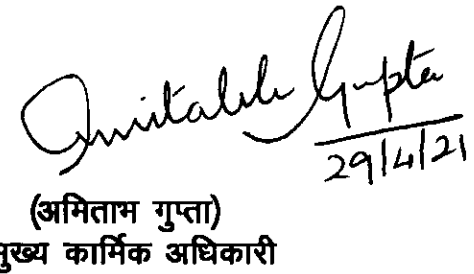 Amitabh Gupta
29/4/21
(अमिताभ गुप्ता)
मुख्य कार्मिक अधिकारी